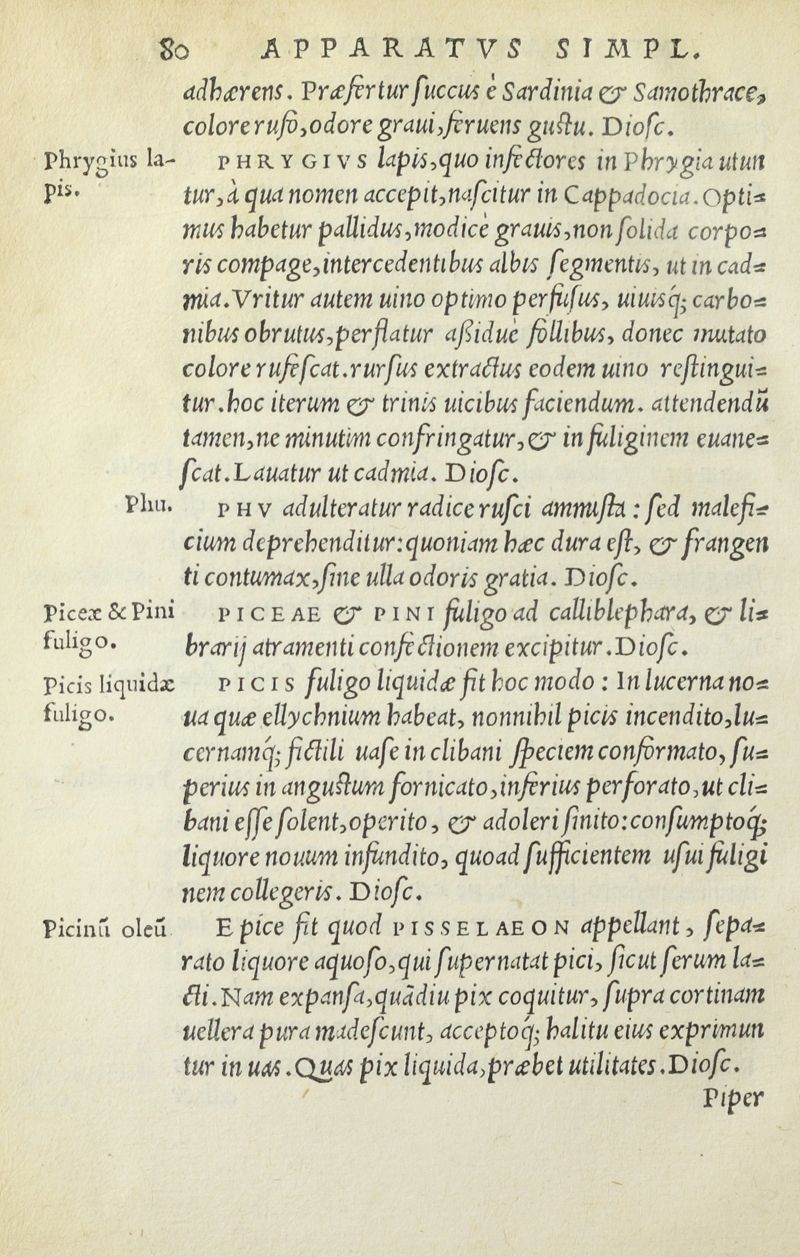 80 APPARATVS SIMPL.
adhærens. Præfertur ſuccus è Sardinia & Samothrace,
colore rufo, odore graui, feruens guſtu. Dioſc.
Phrygius la-
pis.
PHRYGIVS lapis, quo infectores in Phrygia utun
tur, à qua nomen accepit, naſcitur in Cappadocia. Opti-
mus habetur pallidus, modicè grauis, non ſolida corpo-
ris compage, intercedentibus albis ſegmentis, ut in cad-
mia. Vritur autem uino optimo perfuſus, uiuisq́; carbo-
nibus obrutus, perflatur aßiduè follibus, donec mutato
colore rufeſcat. rurſus extractus eodem uino reſtingui-
tur. hoc iterum & trinis uicibus faciendum. attendendū
tamen, ne minutim confringatur, & in fuliginem euane-
ſcat. Lauatur ut cadmia. Dioſc.
Phu.
PHV adulteratur radice ruſci ammiſta: ſed malefi-
cium deprehenditur: quoniam hæc dura eſt, & frangen
ti contumax, ſine ulla odoris gratia. Dioſc.
Piceæ & Pini
fuligo.
PICEAE & PINI fuligo ad calliblephara, & li-
brarij atramenti confectionem excipitur. Dioſc.
Picis liquidæ
fuligo.
PICIS fuligo liquidæ fit hoc modo: In lucerna no-
ua quæ ellychnium habeat, nonnihil picis incendito, lu-
cernamq́; fictili uaſe in clibani ſpeciem conformato, ſu-
perius in anguſtum fornicato, inferius perforato, ut cli-
bani eſſe ſolent, operito, & adoleri ſinito: conſumptoq́;
liquore nouum infundito, quoad ſufficientem uſui fuligi
nem collegeris. Dioſc.
Picinū oleū
E pice fit quod PISSELAEON appellant, ſepa-
rato liquore aquoſo, qui ſupernatat pici, ſicut ſerum la-
cti. Nam expanſa, quādiu pix coquitur, ſupra cortinam
uellera pura madeſcunt, acceptoq́; halitu eius exprimun
tur in uas. Quas pix liquida, præbet utilitates. Dioſc.
Piper